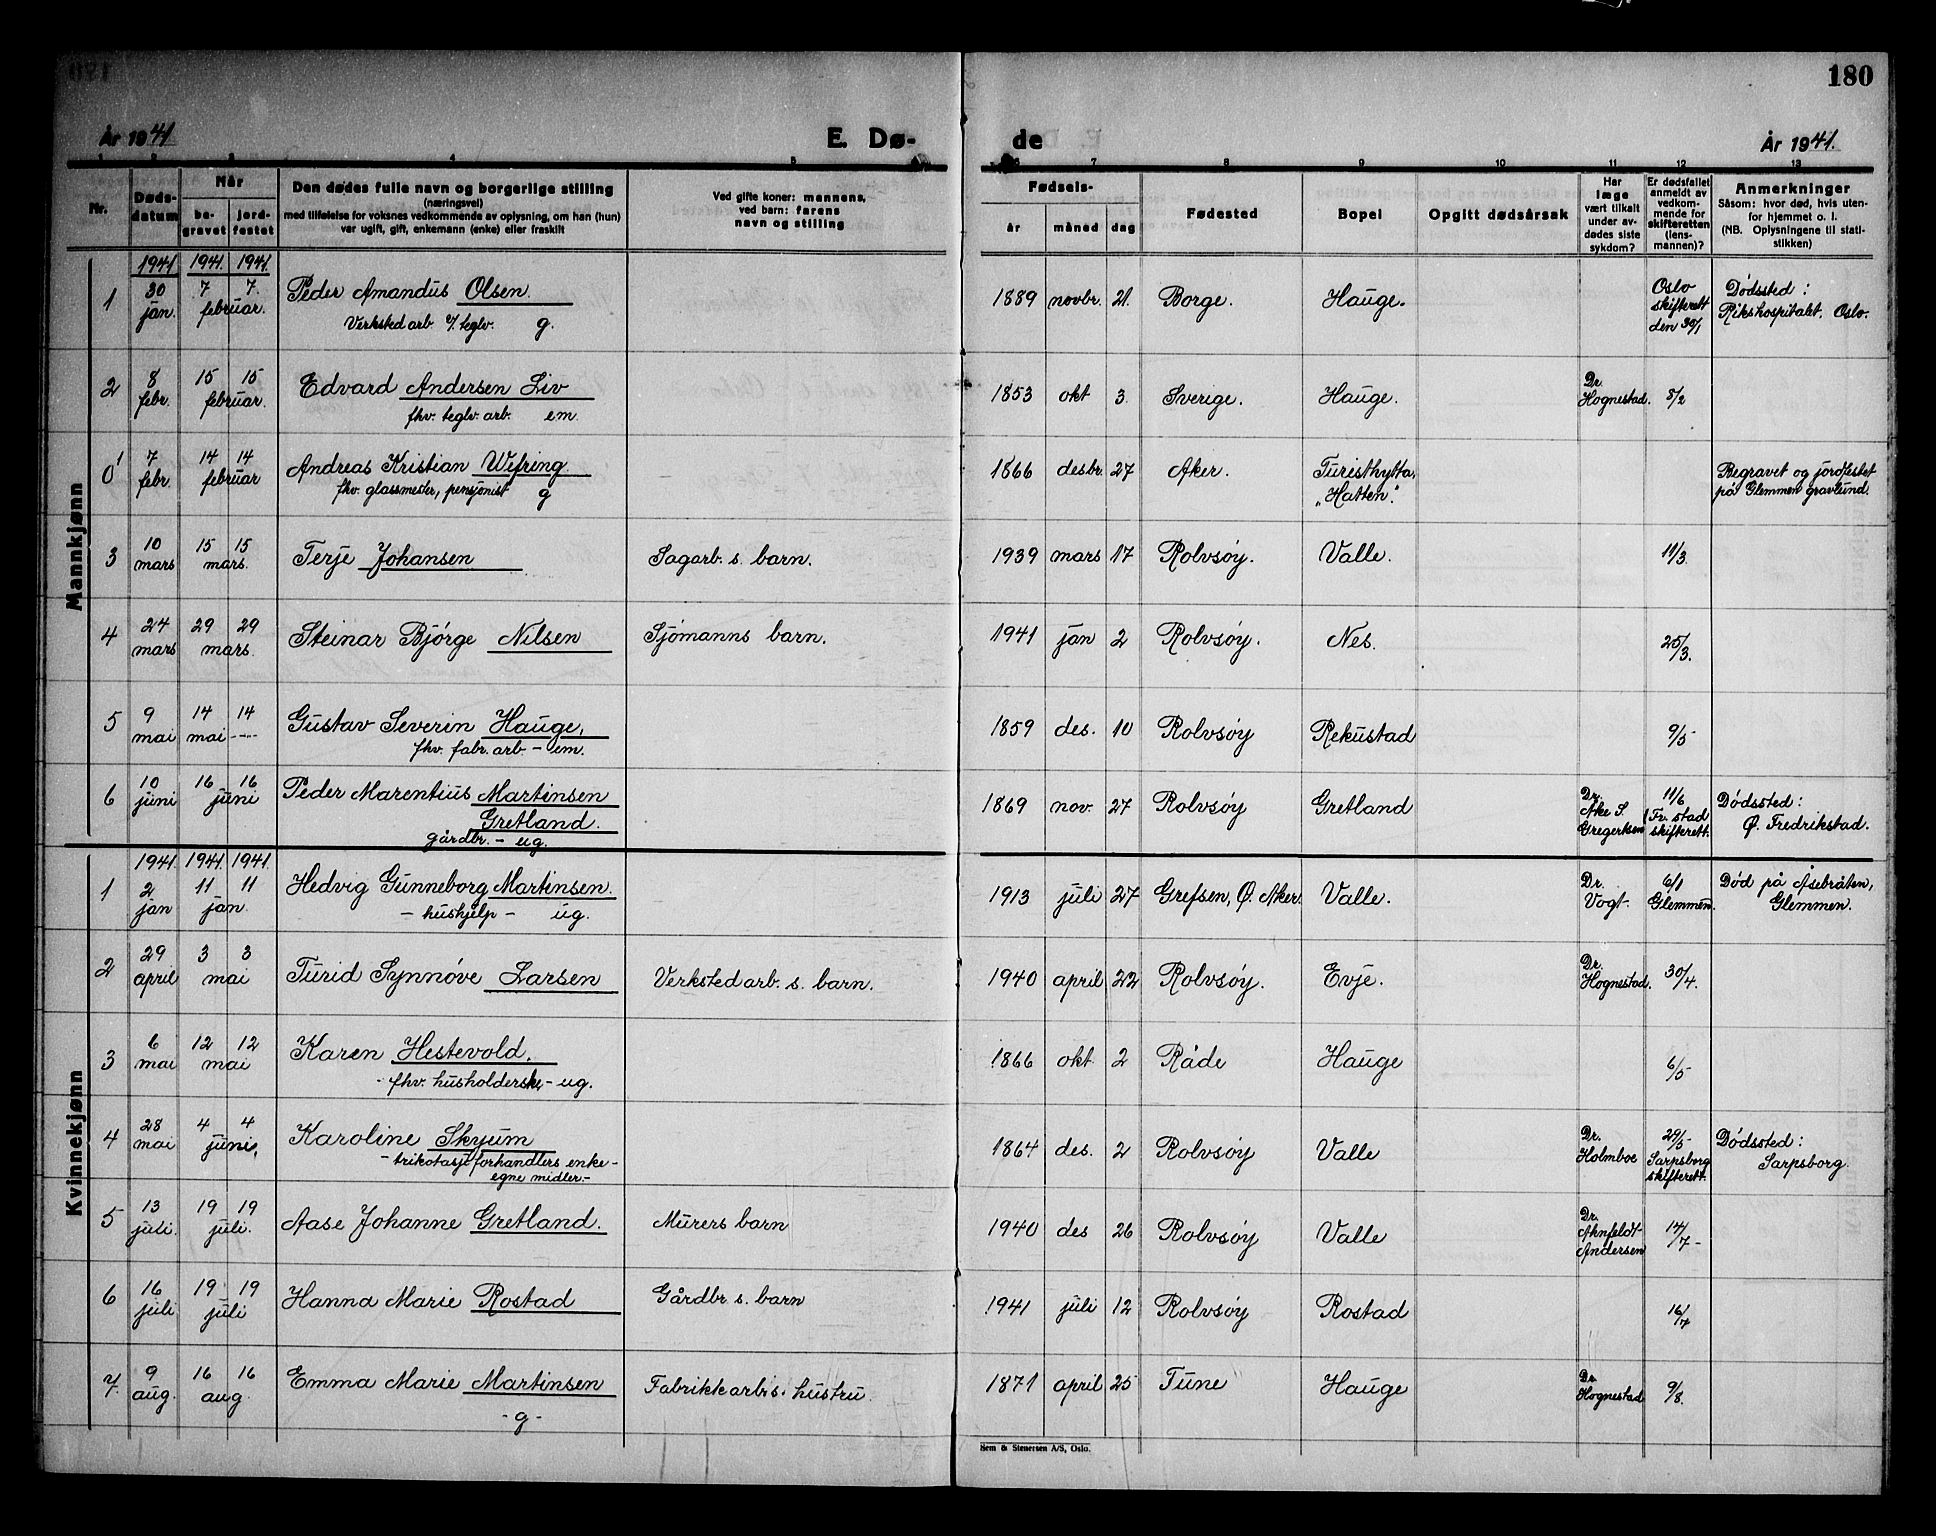 180
År 1941
E. Dø-
de
År 1941.
1 2 3 4 5 6 7 8 9 10 11 12 13
Nr.
Døds-
datum
Når
be-
gravet
jord-
festet
Den dødes fulle navn og borgerlige stilling
(næringsvei)
med tilføielse for voksnes vedkommende av oplysning, om han (hun)
var ugift, gift, enkemann (enke) eller fraskilt
Ved gifte koner: mannens,
ved barn: farens
navn og stilling
Fødsels-
år måned dag
Fødested
Bopel
Opgitt dødsårsak
Har
læge
vært tilkalt
under av-
dødes siste
sykdom?
Er dødsfallet
anmeldt av
vedkom-
mende for
skifteretten
(lens-
mannen)?
Anmerkninger
Såsom: hvor død, hvis uten-
for hjemmet o. l.
(NB. Oplysningene til stati-
stikken)
Mannkjønn
1941 1941. 1941.
1 30 jan. 7 7. februar. Peder Amandus Olsen. 1889 novbr. 21. Borge. Hauge. Oslo skifterett den 30/1 Dødssted: Rikshospitalet. Oslo.
Verksted arb. v. teglv. g.
2 8 febr. 15 15 februar. Edvard Andersen Liv 1853 okt 3. Sverige. Hauge. Dr. Hognestad. 8/2
fhv. teglv. arb. em.
0¹ 7 febr. 14 14 februar Andreas Kristian Wefring. 1866 desbr. 27 Aker. Turisthytta, "Hatten". Begravet og jordfestet på Glemmen gravlund.
fhv. glassmester, pensjonist g
3 10 mars 15 15 mars. Terje Johansen Sagarb. s. barn. 1939 mars 17 Rolvsøy. Valle. 11/3.
4 24 mars 29 29 mars. Steinar Bjørge Nilsen Sjømanns barn. 1941 jan 2 Rolvsøy. Nes. 25/3.
5 9 mai 14 mai 14 ---- Gustav Severin Hauge, 1859 des. 10 Rolvsøy Rekustad 9/5-
fhv. fabr. arb. - em.
6 10 juni 16 16 juni Peder Marentius Martinsen 1869 nov. 27 Rolvsøy Gretland Dr. Ake S. Gregersen 11/6 Fr. stad skifterett. Dødssted: Ø. Fredrikstad.
Gretland.
gårdbr. - ug.
Kvinnekjønn
1941. 1941. 1941.
1 2 jan 11 11 jan. Hedvig Gunneborg Martinsen. 1913 juli 27 Grefsen, Ø. Aker. Valle. Dr. Vogt. 6/1 Glemmen. Død på Åsebråten, Glemmen.
- hushjelp - ug.
2 29 april 3 3 mai Turid Synnøve Larsen Verksted arb. s. barn. 1940 april 22 Rolvsøy. Evje. Dr. Hognestad. 30/4.
3 6 mai 12 12 mai Karen Hestevold. 1866 okt 2 Råde Hauge 6/5-
- fhv. husholderske - ug.
4 28 mai 4 4 juni, Karoline Skyum 1864 des. 2 Rolvsøy Valle Dr. Holmboe 29/5- Sarpsborg skifterett. Dødssted: Sarpsborg.
- trikotasje forhandlers enke -
egne midler. -
5 13 juli. 19 19 juli. Aase Johanne Gretland. Murers barn 1940 des 26 Rolvsøy Valle Dr. Ahnfeldt-Andersen 14/7-
6 16 juli 19 19 juli Hanna Marie Rostad Gårdbr. s. barn 1941 juli 12 Rolvsøy Rostad 16/7
7. 9 aug. 16 16 aug Emma Marie Martinsen Fabrikkarb.s. hustru. 1871 april 25 Tune Hauge Dr. Hognestad 9/8.
- g -
Sem & Stenersen A/S, Oslo.